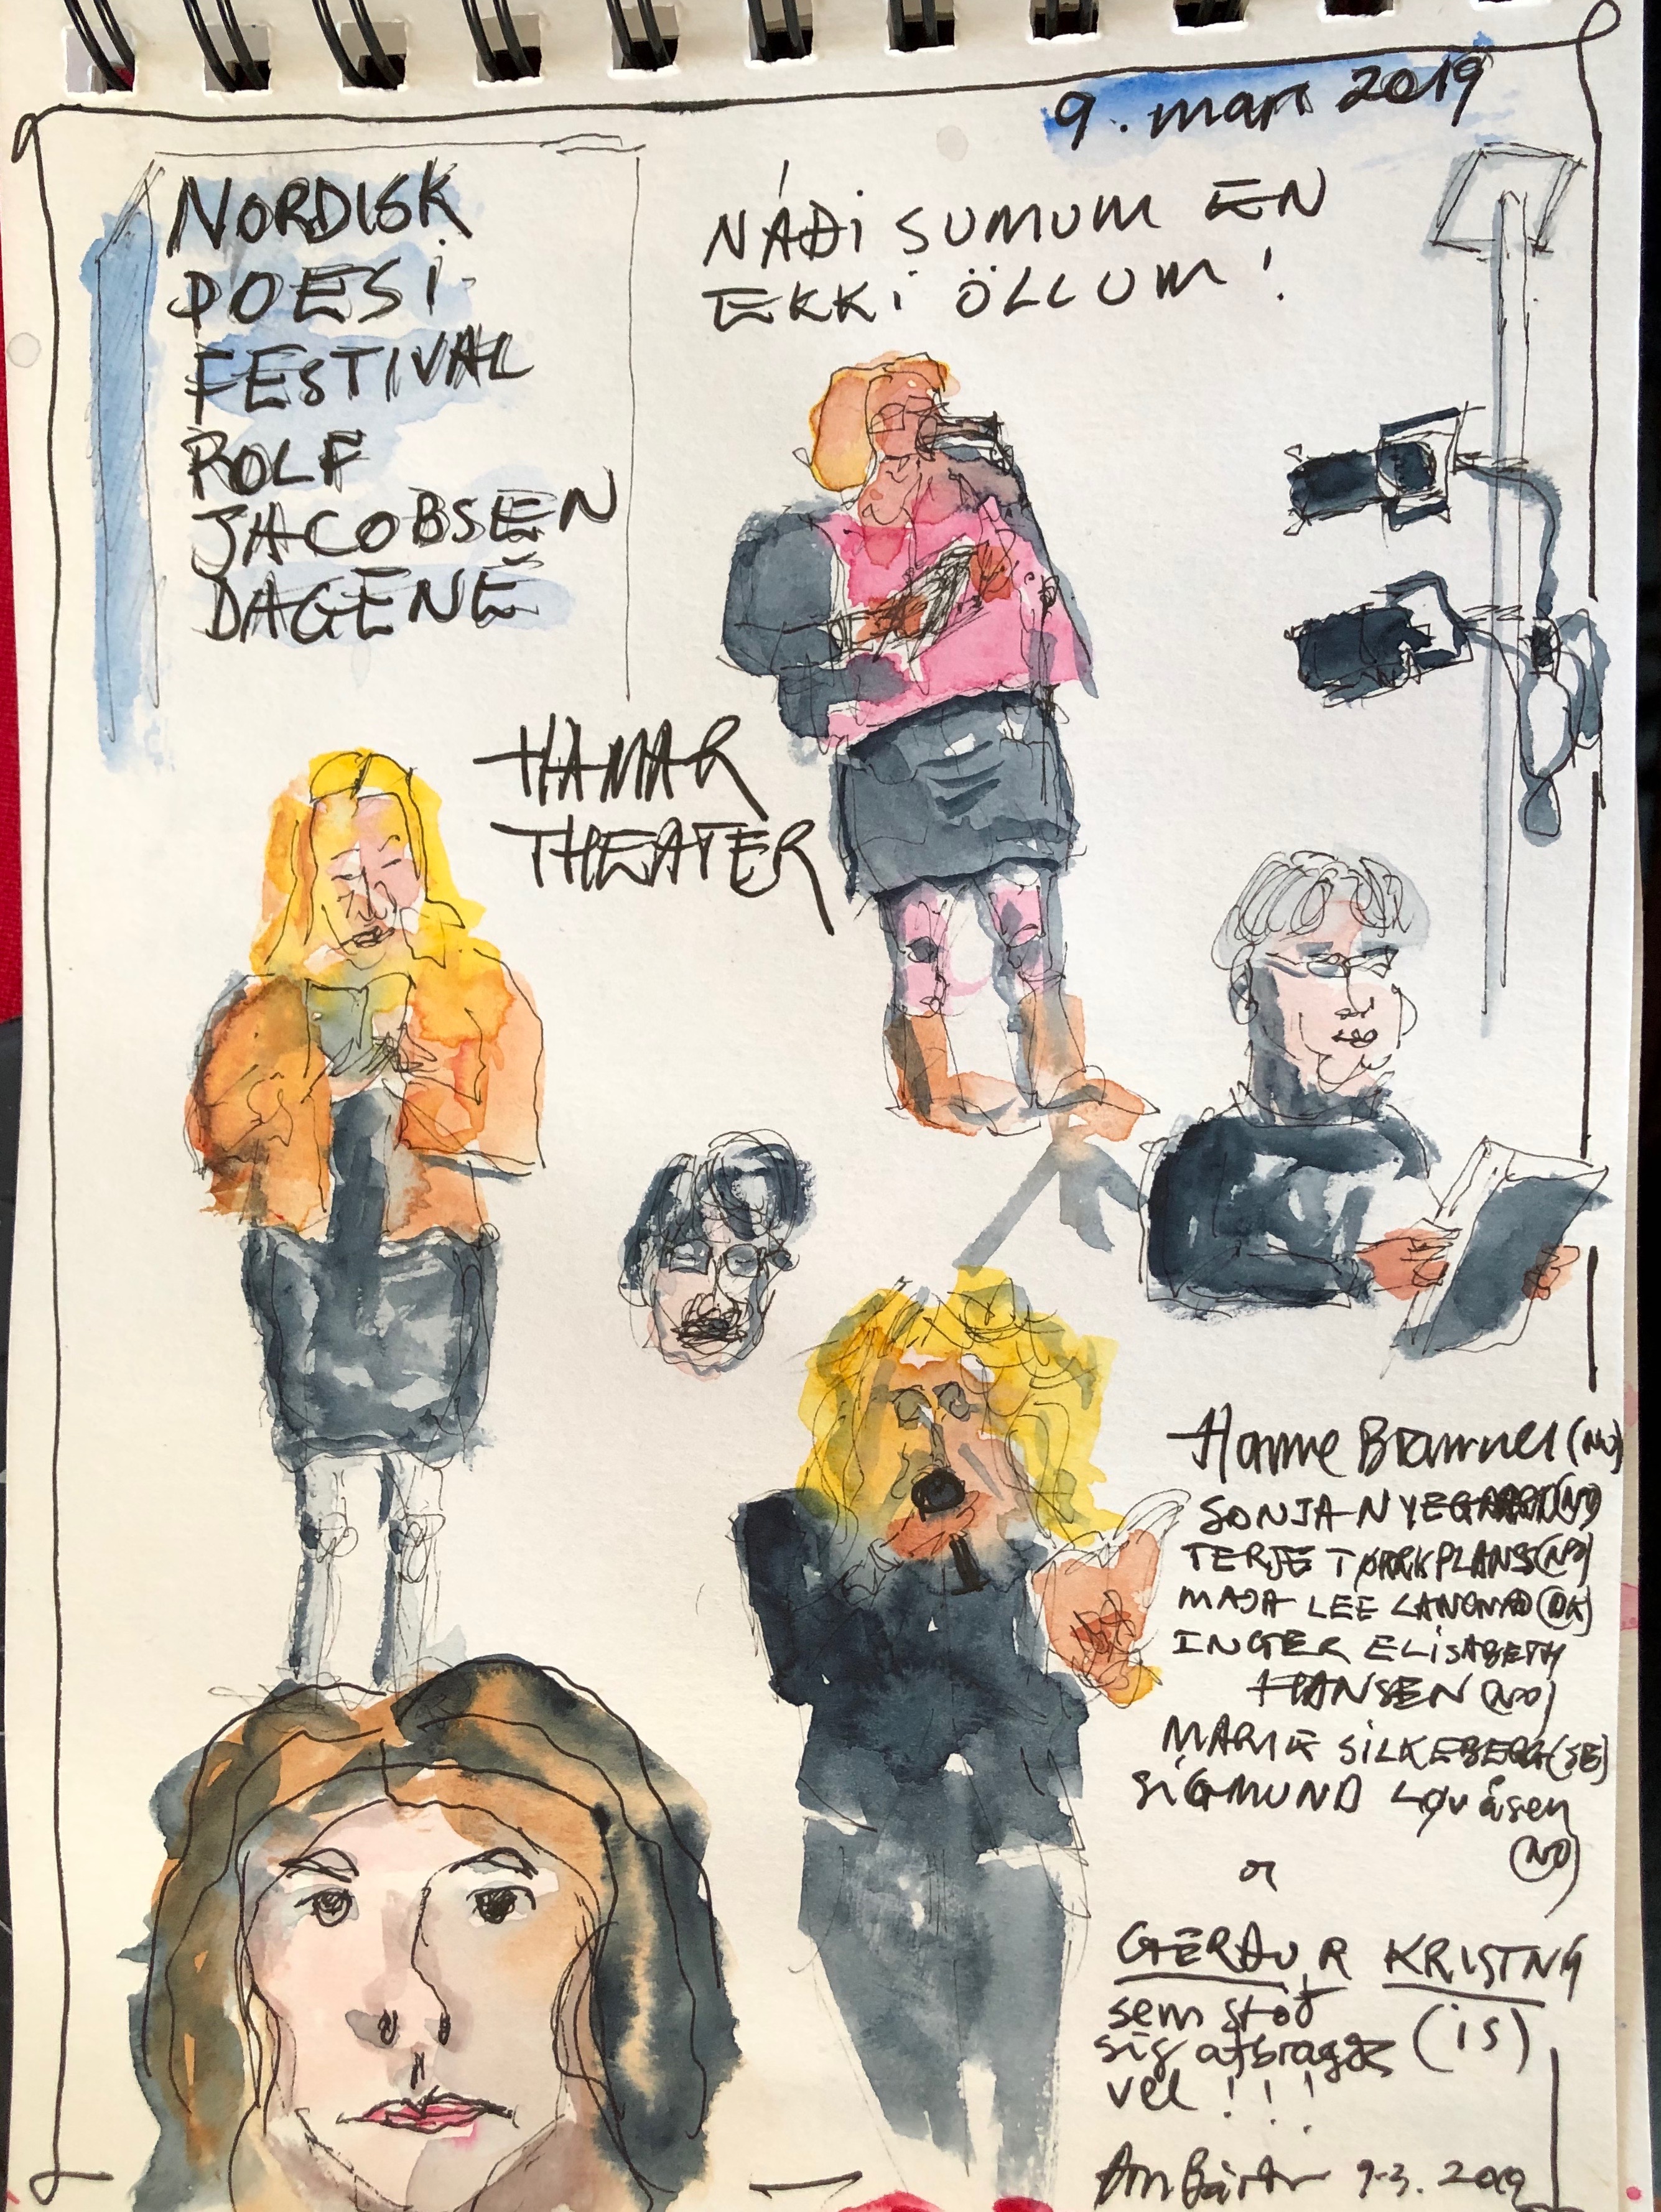 9. mars 2019
NORDISK
POESI
FESTIVAL
ROLF
JACOBSEN
DAGENE
NÁÐI SUMUM EN
EKKI ÖLLUM!
HAMAR
THEATER
Hanne Bramnes (NO)
SONJA NYEGAARD (NO)
TERJE TØRRISPLASS (NO)
MAJA LEE LANGVAD (DK)
INGER ELISABETH
HANSEN (NO)
MARIE SILKEBERG (SE)
SIGMUND Løvåsen
(NO)
og
GERÐUR KRISTNÝ
sem stóð (is)
sig afbragðs
vel!!!
9-3. 2019